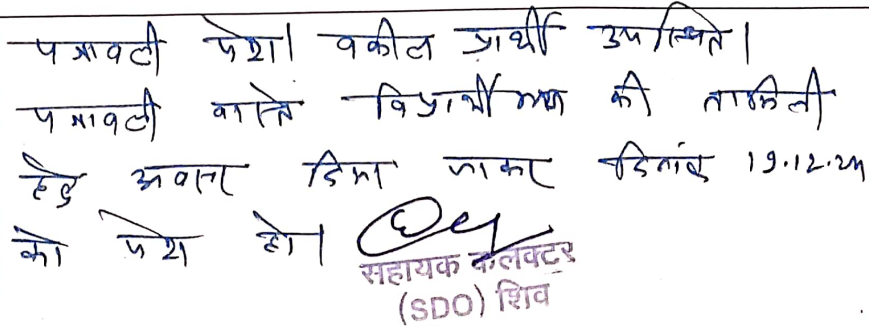 पत्रावली पेश। वकील प्रार्थी उपस्थित।
पत्रावली वास्ते विप्रार्थीगण की तामिली
हेतु अवसर दिया जाकर दिनांक 19.12.24
को पेश हो।
सहायक कलक्टर
(SDO) शिव